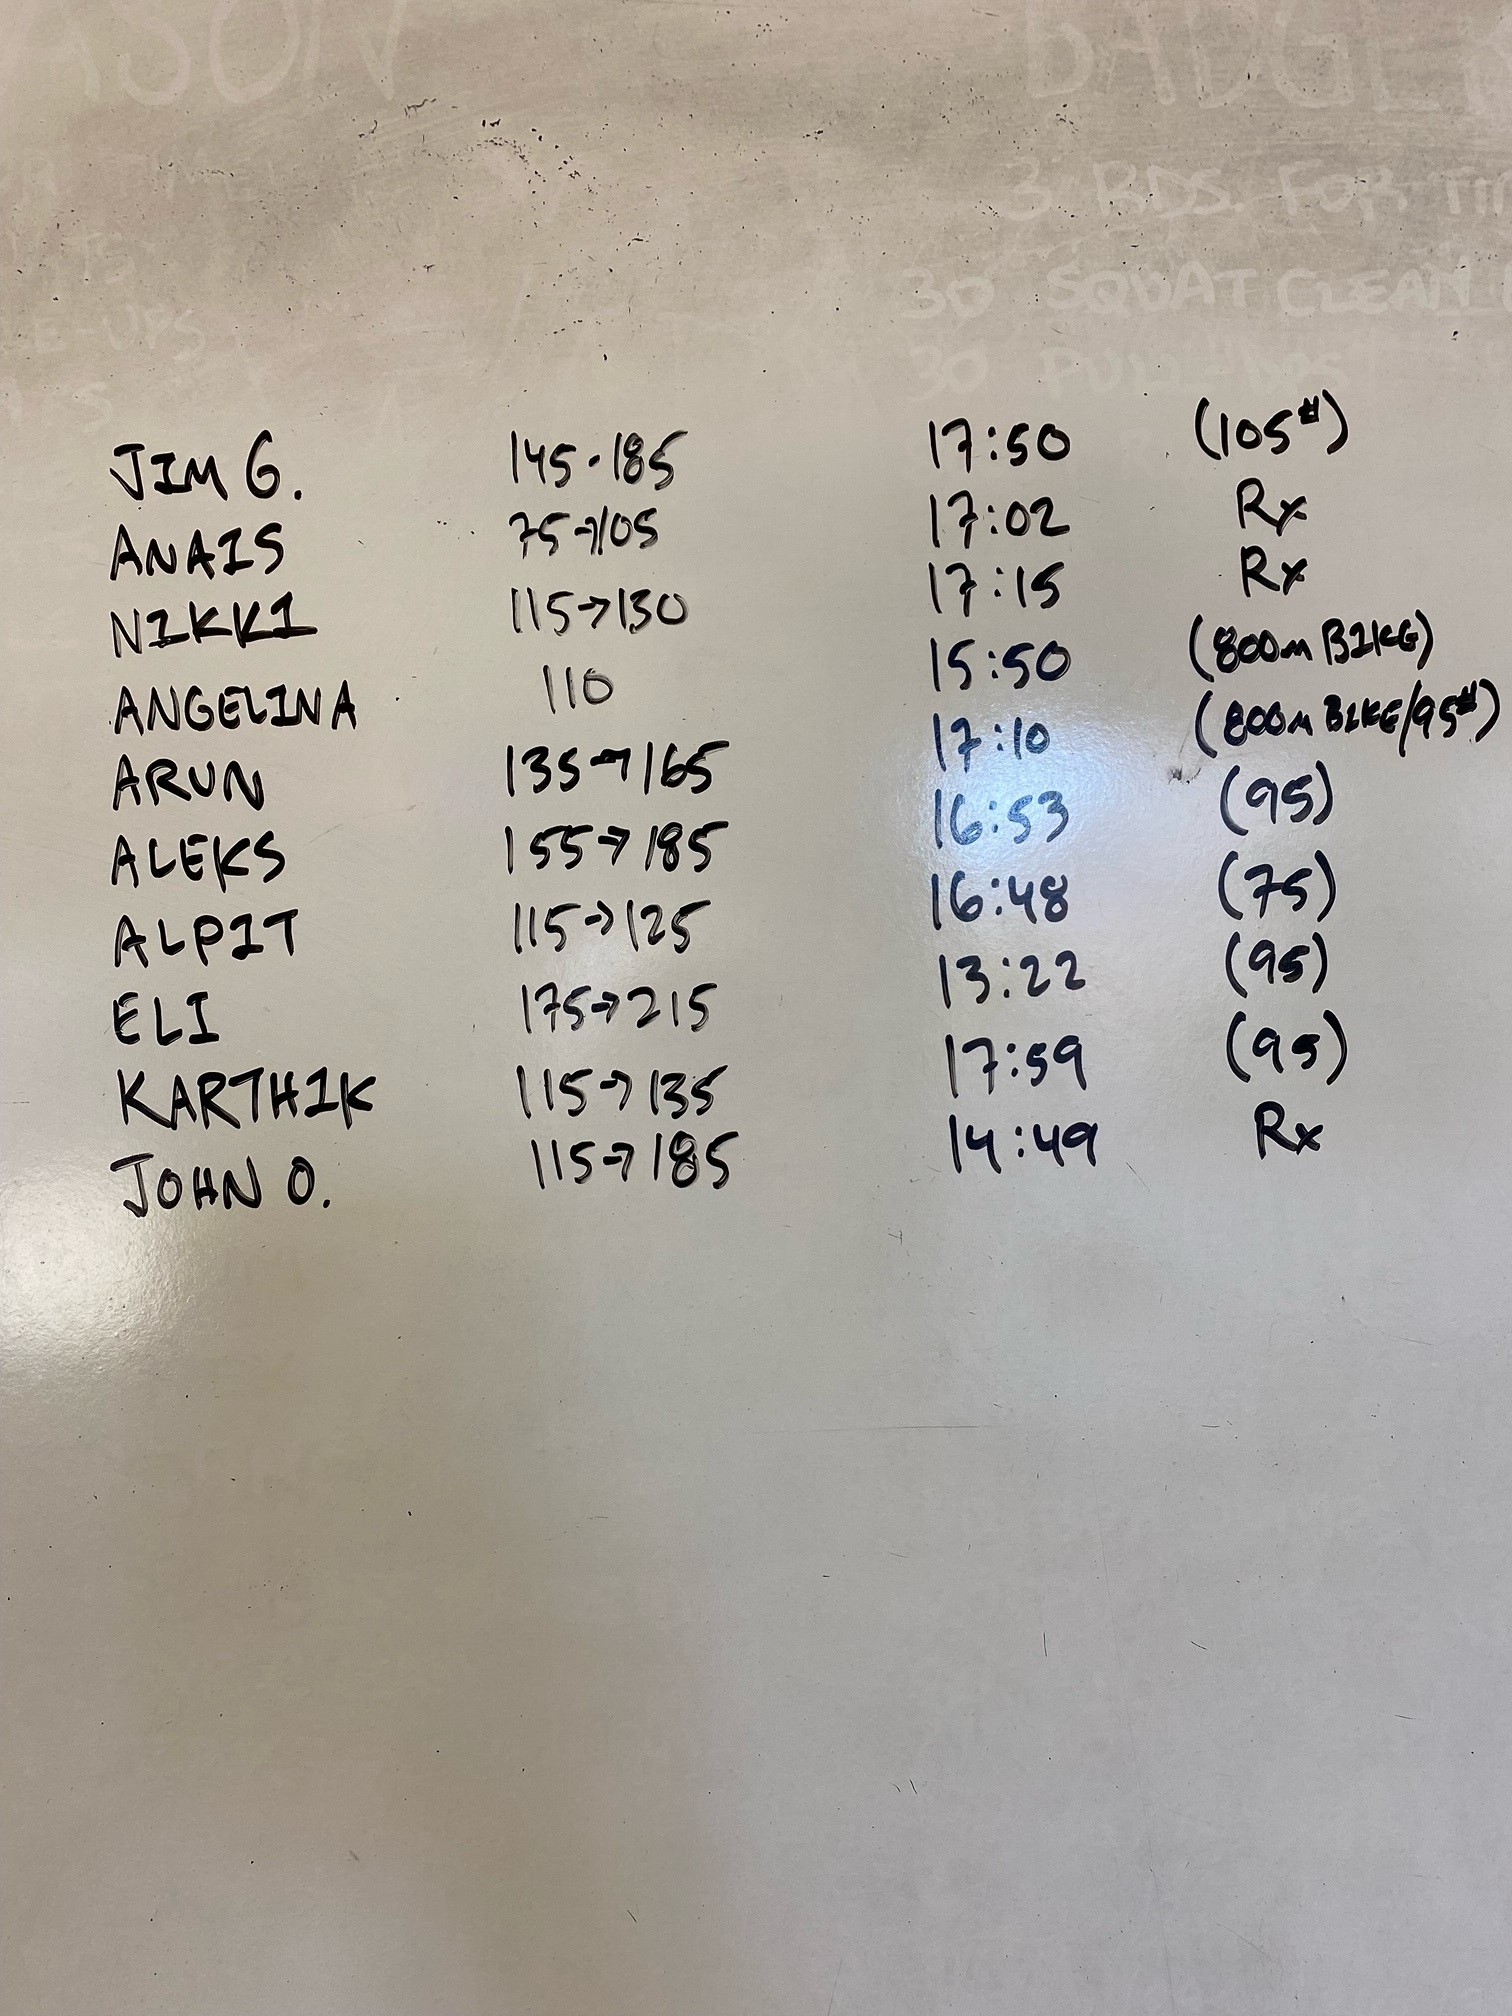 BADGER
3 RDS. FOR TIM
30 SQUAT CLEAN
30 PULL-UPS
JIM G. 145-185 17:50 (105#)
ANAIS 75→105 17:02 Rx
NIKKI 115→130 17:15 Rx
ANGELINA 110 15:50 (800m BIKE)
ARUN 135→165 17:10 (800m BIKE/95#)
ALEKS 155→185 16:53 (95)
ALPIT 115→125 16:48 (75)
ELI 175→215 13:22 (95)
KARTHIK 115→135 17:59 (95)
JOHN O. 115→185 14:49 Rx